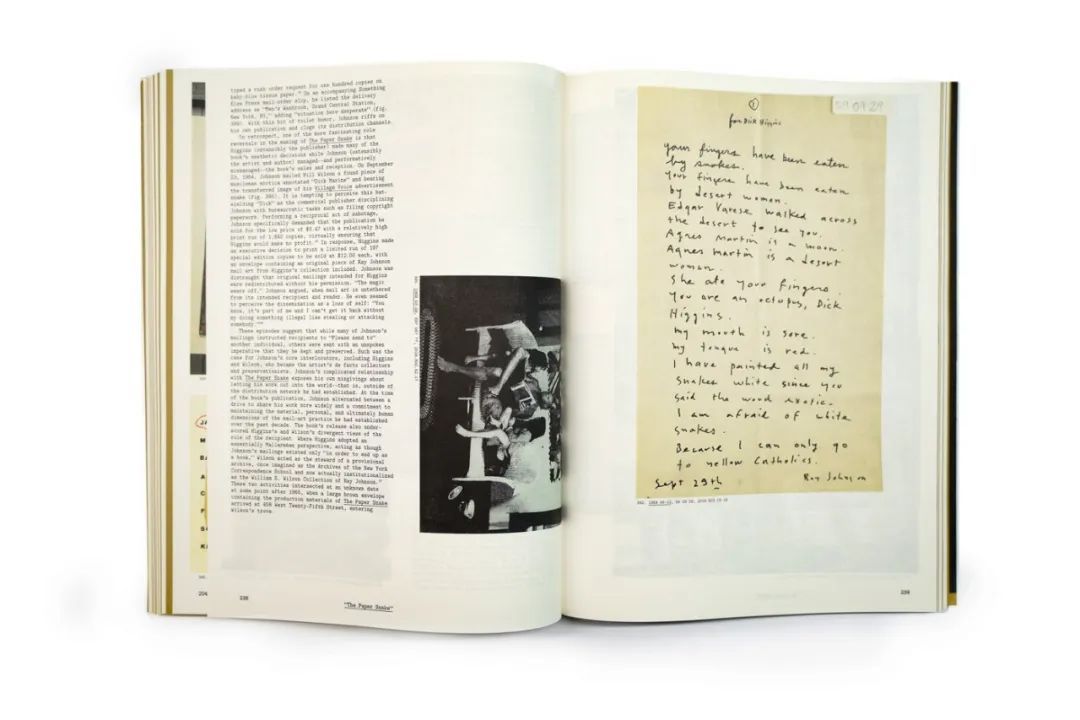 typed a rush order request for one hundred copies on
baby-blue tissue paper." On an accompanying Something
Else Press mail-order slip, he listed the delivery
address as "Men's Washroom, Grand Central Station,
New York, NY," adding "situation here desperate" (fig.
). With this bit of toilet humor, Johnson riffs on
his own publication and clogs its distribution channels.
In retrospect, one of the more fascinating role
reversals in the making of The Paper Snake is that
Higgins (ostensibly the publisher) made many of the
book's aesthetic decisions while Johnson (ostensibly
the artist and author) managed—and performatively
mismanaged—the book's sales and reception. On September
23, 1964, Johnson mailed Bill Wilson a found piece of
muscleman erotica annotated "Dick Marine" and bearing
the transferred image of his Village Voice advertisement
snake (fig. ). It is tempting to perceive this bat-
wielding "Dick" as the commercial publisher disciplining
Johnson with bureaucratic tasks such as filing copyright
paperwork. Performing a reciprocal act of sabotage,
Johnson specifically demanded that the publication be
sold for the low price of $3.47 with a relatively high
print run of 1,840 copies, virtually ensuring that
Higgins would make no profit." In response, Higgins made
an executive decision to print a limited run of 197
special edition copies to be sold at $12.00 each, with
an envelope containing an original piece of Ray Johnson
mail art from Higgins's collection included. Johnson was
distraught that original mailings intended for Higgins
were redistributed without his permission. "The magic
wears off," Johnson argued, when mail art is untethered
from its intended recipient and reader. He even seemed
to perceive the dissemination as a loss of self: "You
know, it's part of me and I can't get it back without
my doing something illegal like stealing or attacking
somebody."
These episodes suggest that while many of Johnson's
mailings instructed recipients to "Please send to"
another individual, others were sent with an unspoken
imperative that they be kept and preserved. Such was the
case for Johnson's core interlocutors, including Higgins
and Wilson, who became the artist's de facto collectors
and preservationists. Johnson's complicated relationship
with The Paper Snake exposes his own misgivings about
letting his work out into the world—that is, outside of
the distribution network he had established. At the time
of the book's publication, Johnson alternated between a
drive to share his work more widely and a commitment to
maintaining the material, personal, and ultimately human
dimensions of the mail-art practice he had established
over the past decade. The book's release also under-
scored Higgins's and Wilson's divergent views of the
role of the recipient. Where Higgins adopted an
essentially Mallarmean perspective, acting as though
Johnson's mailings existed only "in order to end up as
a book," Wilson acted as the steward of a provisional
archive, once imagined as the Archives of the New York
Correspondence School and now actually institutionalized
as the William S. Wilson Collection of Ray Johnson."
These two activities intersected at an unknown date
at some point after 1965, when a large brown envelope
containing the production materials of The Paper Snake
arrived at 458 West Twenty-Fifth Street, entering
Wilson's trove.
204
238
"The Paper Snake"
1
for Dick Higgins
59 09 29
your fingers have been eaten
by snakes.
your fingers have been eaten
by desert woman.
Edgar Varese walked across
the desert to see you.
Agnes Martin is a moon.
Agnes Martin is a desert
woman.
She ate your fingers.
You are an octopus, Dick
Higgins.
my mouth is sore.
my tongue is red.
I have painted all my
snakes white since you
said the word exotic.
I am afraid of white
snakes.
Because I can only go
to yellow Catholics.
Sept 29th
Ray Johnson
239